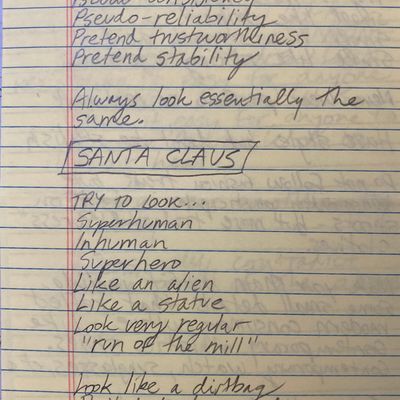 Pseudo-reliability
Pretend trustworthiness
Pretend stability
Always look essentially the
same.
SANTA CLAUS
TRY TO LOOK...
Superhuman
Inhuman
Superhero
Like an alien
Like a statue
Look very regular
"run of the mill"
Look like a dirtbag